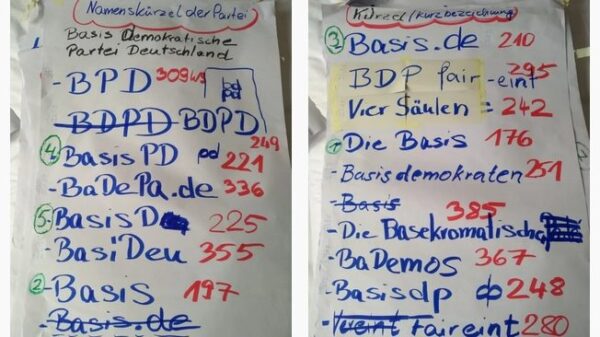 Namenskürzel der Partei
Basis Demokratische
Partei Deutschland
- BPD 309
- BDPD BDPD
249
④ BasisPD pd 221
- BaDePa.de 336
⑤ - BasisD 225
- BasiDeu 355
② - Basis 197
- Basis.de
Kürzel/Kurzbezeichnung
③ Basis.de 210
BDP fair-eint 295
Vier Säulen = 242
① Die Basis 176
- Basisdemokraten 251
- Basis
385
- Die Basekromatische
- BaDemos 367
- Basisdp 248
- Vereint Faireint 280